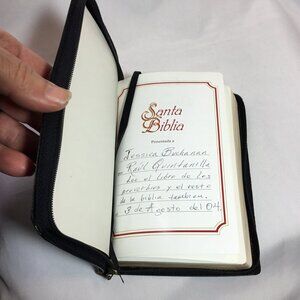 Santa
Biblia
Presentada a
Jessica Buchanan
Raúl Quintanilla
Lee el libro de los
proverbios y el resto
de la biblia tambien.
3 de Agosto del 04.